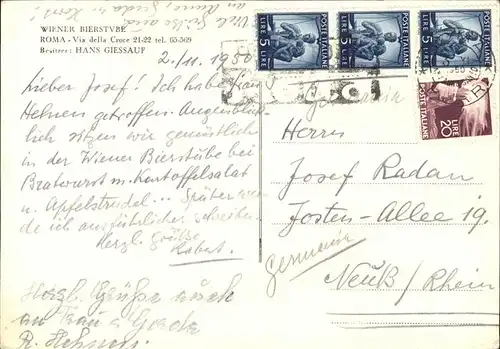 Viele Grüße auch
an Anne, Gerda u. Horst!
WIENER BIERSTVBE
ROMA - Via della Croce 21-22 tel. 65-569
Besitzer: HANS GIESSAUF
2./11. 1950
Lieber Josef! Ich habe Frau
Hehnen getroffen. Augenblick-
lich sitzen wir gemütlich
in der Wiener Bierstübe bei
Bratwurst m. Kartoffelsalat
u. Apfelstrudel... Später wer-
de ich ausführlicher schreiben.
Herzl. Grüße
Robert.
Herzl. Grüße auch
an Frau u. Gerda
R. Hehnen.
LIRE 5 POSTE ITALIANE
LIRE 5 POSTE ITALIANE
LIRE 5 POSTE ITALIANE
POSTE ITALIANE LIRE 20
Herrn
Josef Radan
Josten-Allee 19.
Germania
Neuß / Rhein